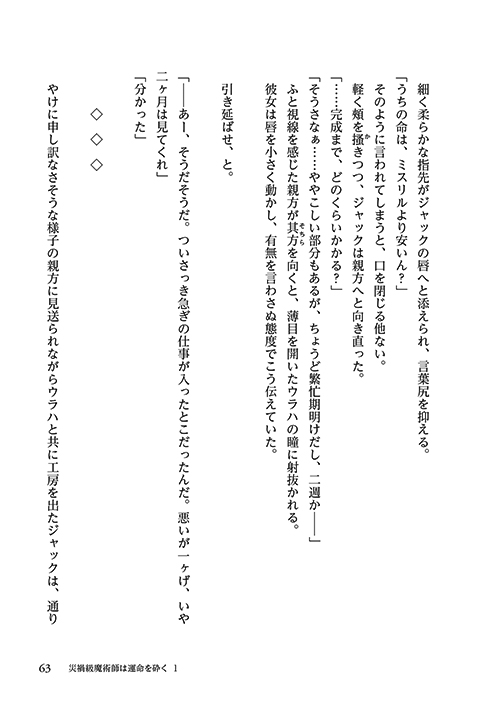 細く柔らかな指先がジャックの唇へと添えられ、言葉尻を抑える。
「うちの命は、ミスリルより安いん？」
　そのように言われてしまうと、口を閉じる他ない。
　軽く頰を搔きつつ、ジャックは親方へと向き直った。
「……完成まで、どのくらいかかる？」
「そうさなぁ……ややこしい部分もあるが、ちょうど繁忙期明けだし、二週か――」
　ふと視線を感じた親方が其方を向くと、薄目を開いたウラハの瞳に射抜かれる。
　彼女は唇を小さく動かし、有無を言わさぬ態度でこう伝えていた。
　引き延ばせ、と。
「――あー、そうだそうだ。ついさっき急ぎの仕事が入ったとこだったんだ。悪いが一ヶげ、いや
二ヶ月は見てくれ」
「分かった」
◇　◇　◇
　やけに申し訳なさそうな様子の親方に見送られながらウラハと共に工房を出たジャックは、通り
63　災禍級魔術師は運命を砕く 1